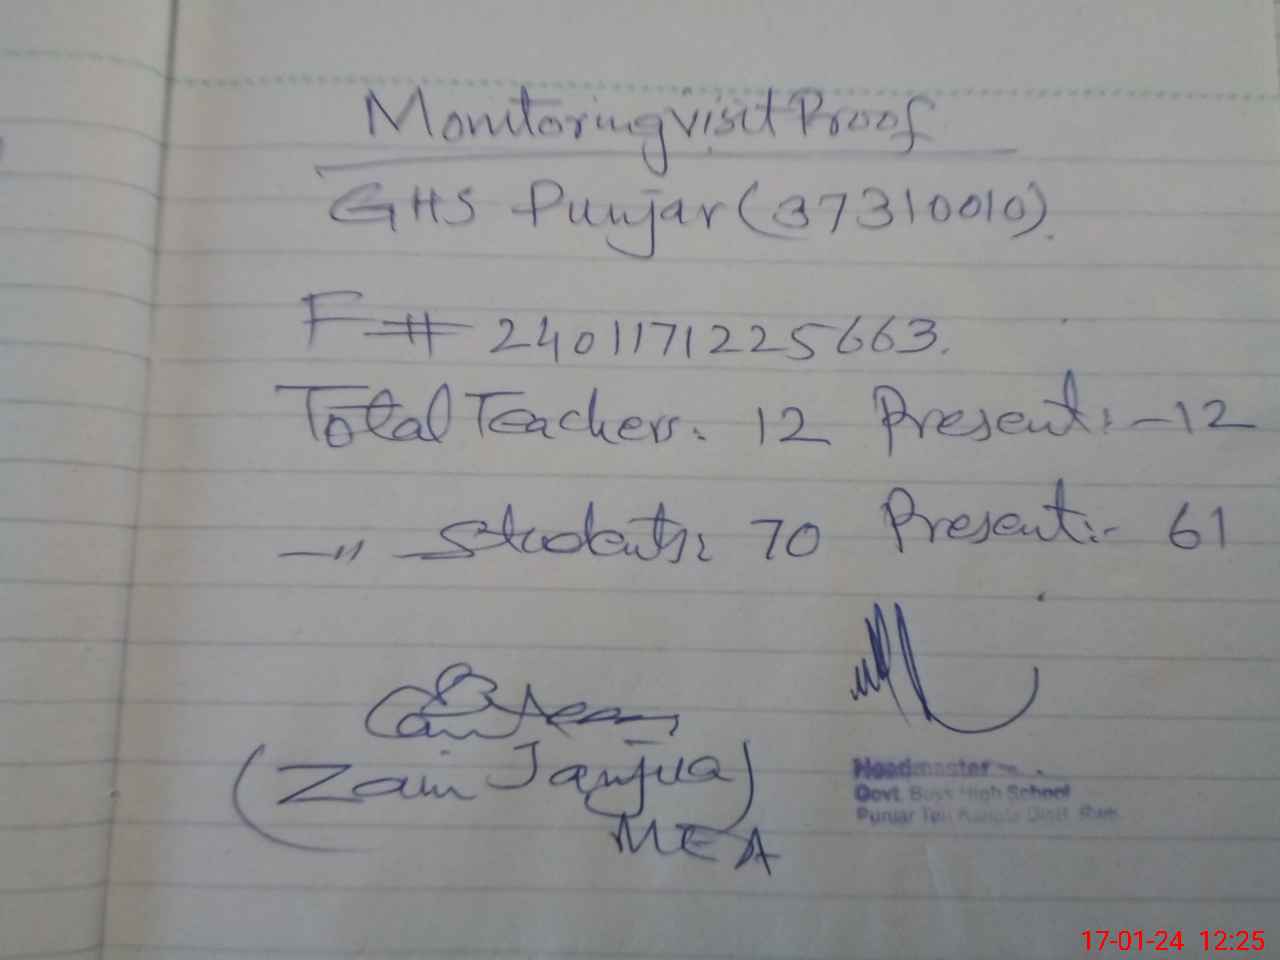 Monitoring visit Proof
GHS Punjar (37310010).
F # 2401171225663.
Total Teachers: 12 Present:- 12
—〃— Students: 70 Present:- 61
(Zain Janjua)
MEA
Headmaster
Govt. Boys High School
Punjar Teh Kahuta Distt. Rwp.
17-01-24 12:25